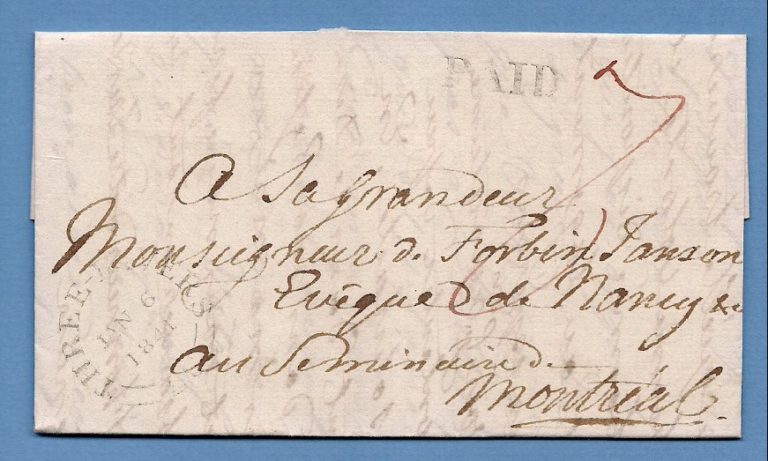 PAID 7
A Sa Grandeur
Monseigneur de Forbin Janson
Evêque de Nancy &c
au Seminaire
Montréal
THREE RIVERS
1841